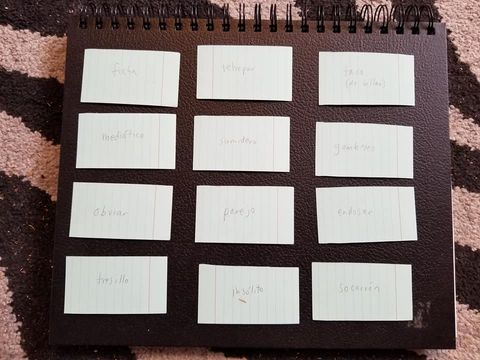 fiofa
retropar
taco
(de billar)
mediático
sumidero
gamberro
obviar
parejo
endosar
tresillo
insólito
socarrón